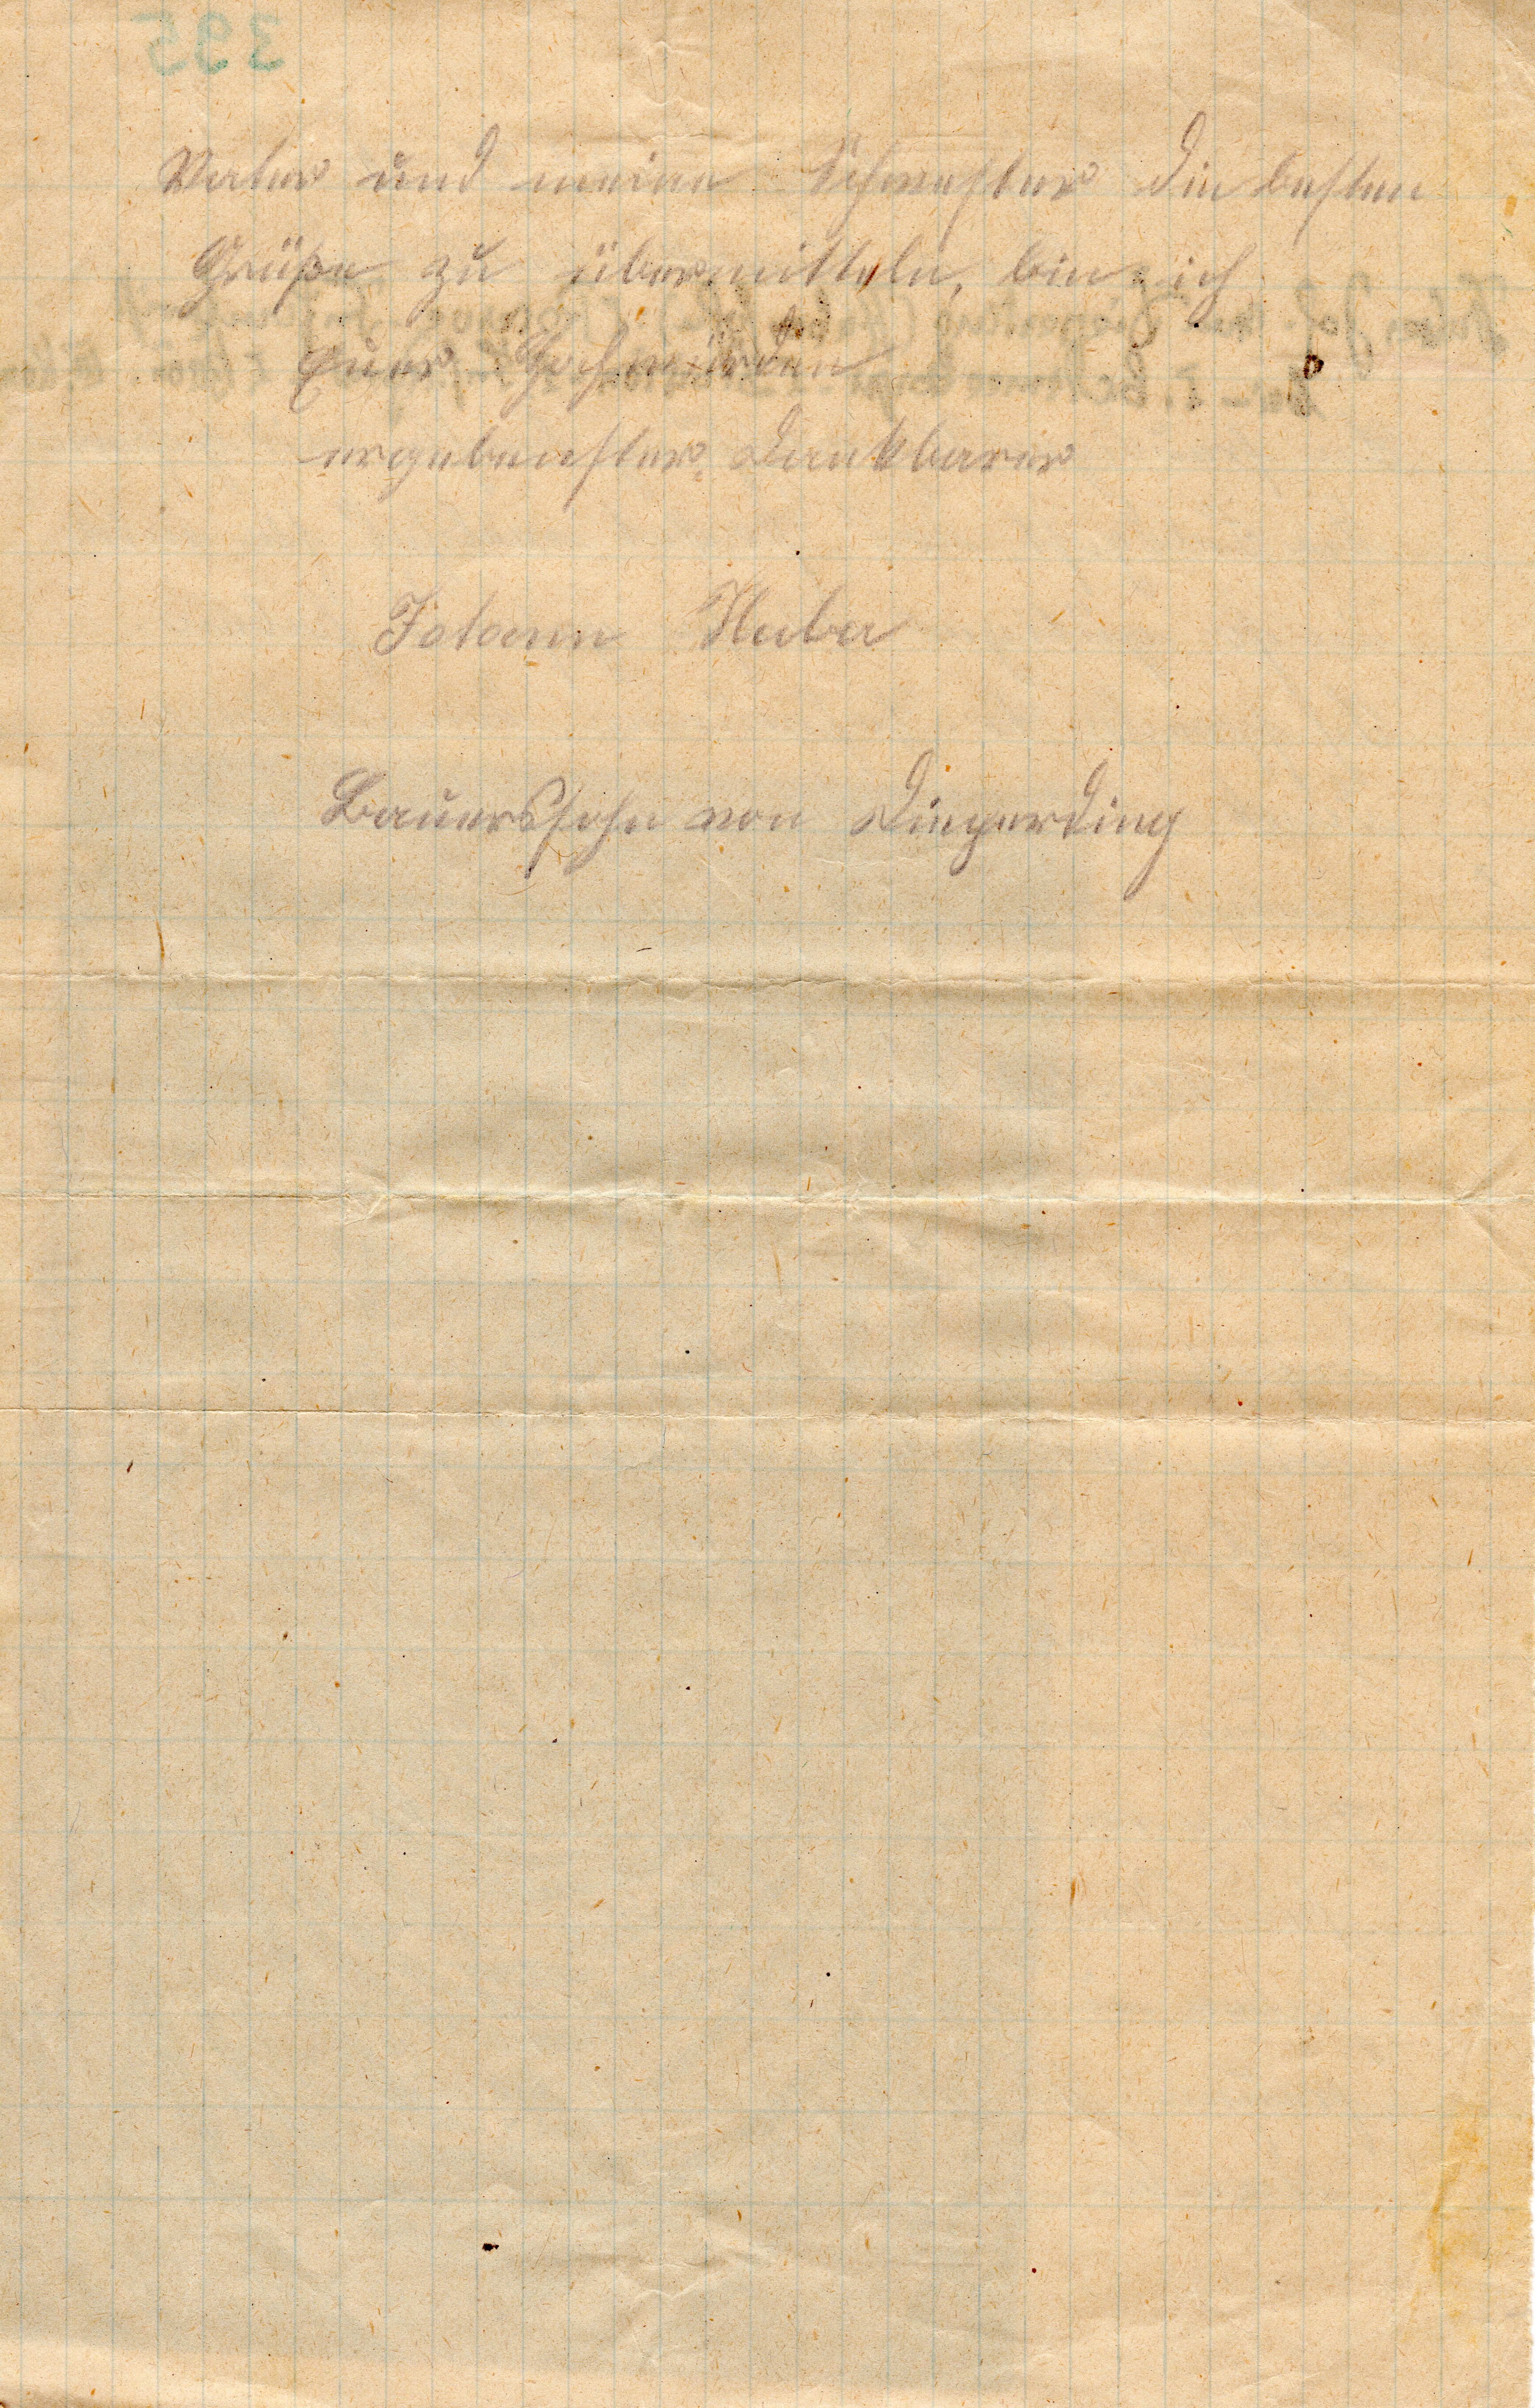 Vater und meine Schwester die besten
Grüße zu übermitteln, bin ich
Euer Hochwürden
ergebenster dankbarer
Johann Huber
Bauerssohn von Diegerding
395